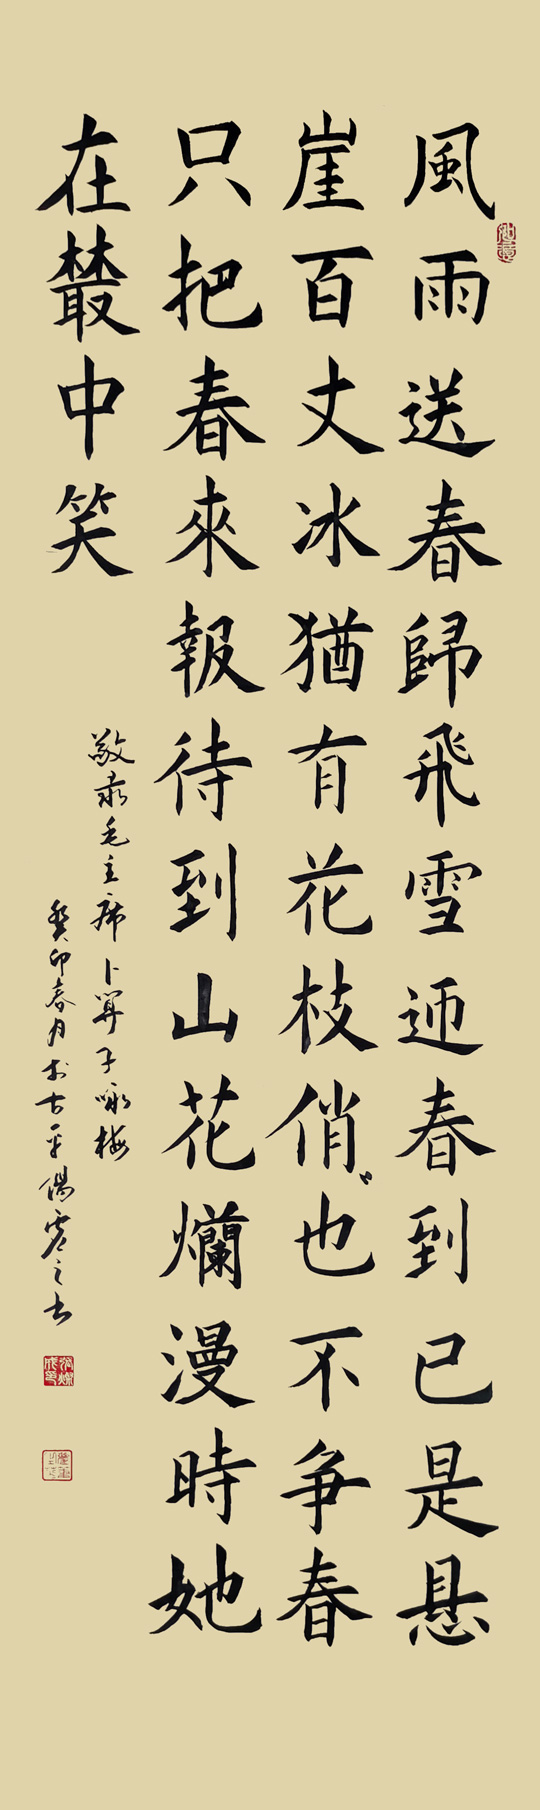 風雨送春歸飛雪迊春到已是县
崖百丈冰猶有花枝俏也不争春
只把春來報待到山花爛漫時她
在叢中笑
敬录毛主席卜算子咏梅
癸卯春月於古平陽